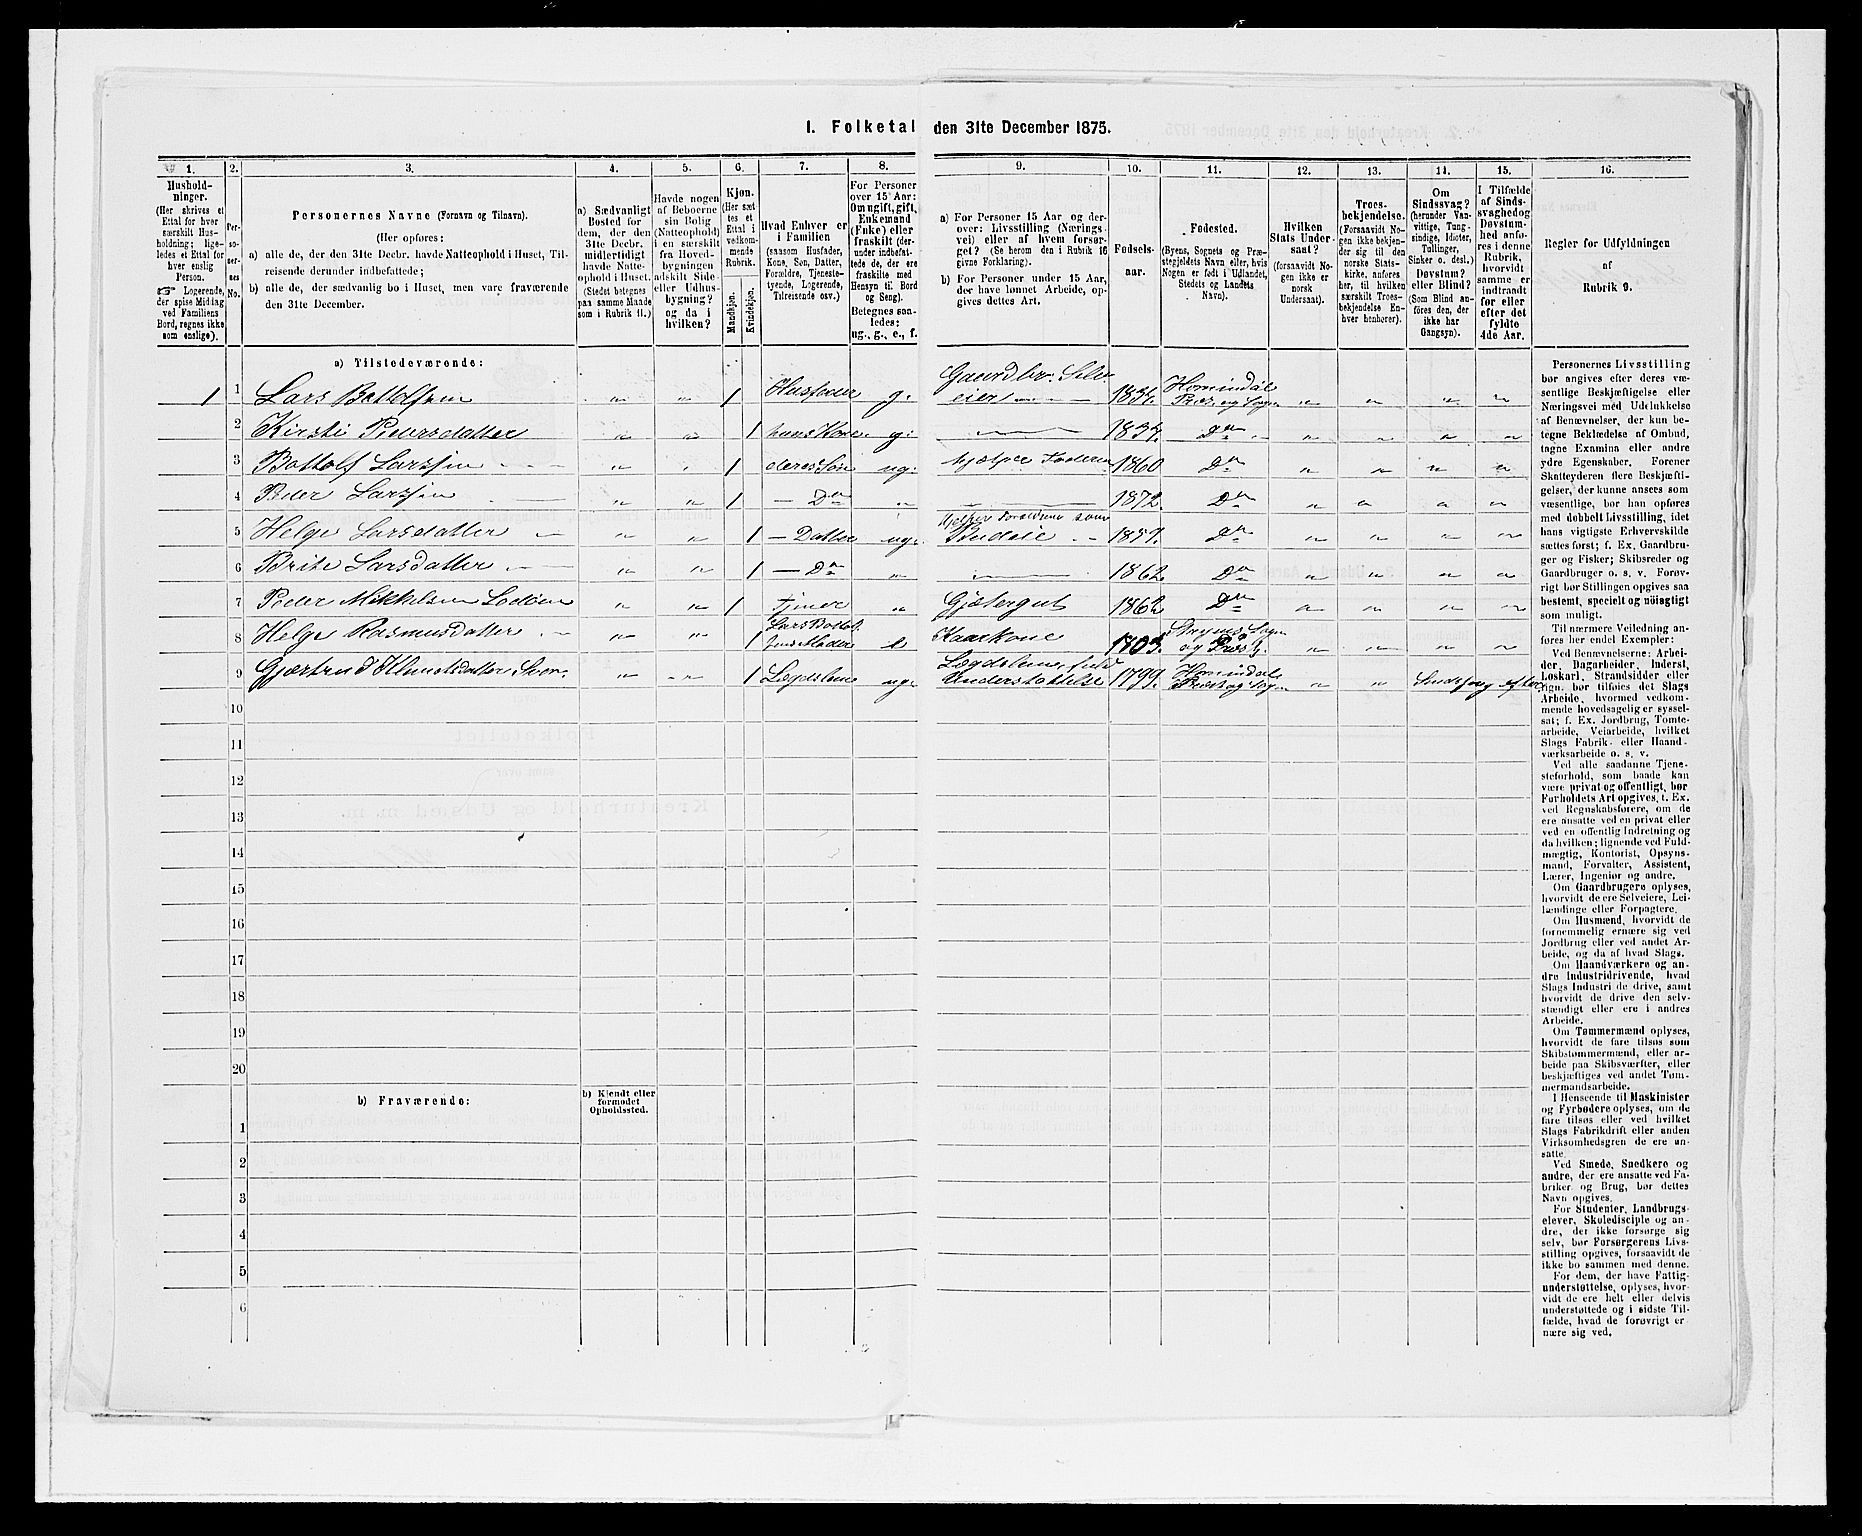 1. Folketal den 31te December 1875.
1.
Hushold-
ninger.
(Her skrives et
Ettal for hver
særskilt Hus-
holdning; lige-
ledes ei Ettal for
hver enslig
Person.
Logerende,
der spise Middag
ved Familiens
Bord, regnes ikke
som enslige).
2.
Per-
so-
ner-
nes
No.
3.
Personernes Navne (Fornavn og Tilnavn).
(Her opføres:
a) alle de, der den 31te Decbr. havde Natteophold i Huset, Til-
reisende derunder indbefattede;
b) alle de, der sædvanlig bo i Huset, men vare fraværende
den 31te December.
4.
a) Sædvanligt
Bosted for
dem, der den
31te Decbr.
midlertidigt
havde Natte-
ophold i Huset.
(Stedet betegnes
paa samme Maade
som i Rubrik 11.)
5.
Havde nogen
af Beboerne
sin Bolig
(Natteophold)
i en særskilt
fra Hoved-
bygningen
adskilt Side-
eller Udhus-
bygning?
og da i
hvilken?
6.
Kjøn.
(Her sæt-
tes et
Ettal i
vedkom-
mende
Rubrik.
Mandkjøn.
Kvindekjøn.
7.
Hvad Enhver er
i Familien
(saasom Husfader,
Kone, Søn, Datter,
Forældre, Tjeneste-
tyende, Logerende,
Tilreisende osv.)
8.
For Personer
over 15 Aar:
Om ugift, gift,
Enkemand
(Enke) eller
fraskilt (der-
under indbefat-
tede de, der ere
fraskilte med
Hensyn til Bord
og Seng).
Betegnes saa-
ledes:
ug., g., e., f.
9.
a) For Personer 15 Aar og der-
over: Livsstilling (Nærings-
vei) eller af hvem forsør-
get? (Se herom den i Rubrik 16
givne Forklaring).
b) For Personer under 15 Aar,
der have lønnet Arbeide, op-
gives dettes Art.
10.
Fødsels-
aar.
11.
Fødested.
(Byens, Sognets og Præ-
stegjeldets Navn eller, hvis
Nogen er født i Udlandet,
Stedets og Landets
Navn).
12.
Hvilken
Stats Under-
saat?
(forsaavidt No-
gen ikke er
norsk
Undersaat).
13.
Troes-
bekjendelse.
(Forsaavidt No-
gen ikke bekjen-
der sig til den
norske Stats-
kirke, anføres
her, til hvilken
særskilt Troes-
bekjendelse En-
hver henhører).
14.
Om
Sindssvag?
(herunder Van-
vittige, Tung-
sindige, Idioter,
Tullinger,
Sinker o. desl.)
Døvstum?
eller Blind?
(Som Blind an-
føres den, der
ikke har
Gangsyn).
15.
I Tilfælde
af Sinds-
svaghed og
Døvstum-
hed anfø-
res i denne
Rubrik,
hvorvidt
samme er
indtrandt
før eller
efter det
fyldte
4de Aar.
16.
Regler for Udfyldningen
af
Rubrik 9.
a) Tilstedeværende:
1 1 Lars Bottolfsen " " 1 Husfader g. Gaardbr. Selv-
eier 1834. Hornindal
Præs. og Sogn " " " "
2 Kirsti Pedersdatter " " 1 hans Kone g: 1837. Do " " " "
3 Bottolf Larssen " " 1 deres Søn ug. hjelper Faderen 1860. Do " " " "
4 Peder Larssen " " 1 — Do " 1872. Do " " " "
5 Helge Larsdatter " " 1 — Datter ug. hjelper Forældrene som
Budeie 1857. Do " " " "
6 Brite Larsdatter " " 1 — Do " 1862 Do " " " "
7 Peder Mikkelsen Lødøen " " 1 Tjener " Gjætergut 1862 Do " " " "
8 Helge Rasmusdatter " " 1 Lars Bottol
fsens Moder e Kaarkone 1703. Stryns Sogn
og Præstg. " " " "
9 Gjertrud Klausdatter " " 1 Lægdslem ug. Lægdslem, fuld
Understøttelse 1799. Hornindal
Præst og Sogn " " Sindssvag efter
10
11
12
13
14
15
16
17
18
19
20
b) Fraværende:
b) Kjendt eller
formodet
Opholdssted.
1
2
3
4
5
6
Personernes Livsstilling
bør angives efter deres væ-
sentlige Beskjæftigelse eller
Næringsvei med Udelukkelse
af Benævnelser, der kun be-
tegne Beklædelse af Ombud,
tagne Examina eller andre
ydre Egenskaber. Forener
Skatteyderen flere Beskjæfti-
gelser, der kunne ansees som
væsentlige, bør han opføres
med dobbelt Livsstilling, idet
hans vigtigste Erhvervskilde
sættes først; f. Ex. Gaardbru-
ger og Fisker; Skibsreder og
Gaardbruger o. s. v. Forøv-
rigt bør Stillingen opgives saa
bestemt, specielt og nöiagtigt
som muligt.
Til nærmere Veiledning an-
føres her endel Exempler:
Ved Benævnelserne: Arbei-
der, Dagarbeider, Inderst,
Løskarl, Strandsidder eller
lign. bør tilføies det Slags
Arbeide, hvormed vedkom-
mende hovedsagelig er syssel-
sat; f. Ex. Jordbrug, Tomte-
arbeide, Veiarbeide, hvilket
Slags Fabrik- eller Haand-
værksarbeide o. s. v.
Ved alle saadanne Tjene-
steforhold, som baade kan
være privat og offentligt, bør
Forholdets Art opgives, t. Ex.
ved Regnskabsførere, om de
ere ansatte ved en privat eller
ved en offentlig Indretning og
da hvilken; lignende ved Fuld-
mægtig, Kontorist, Opsyns-
mand, Forvalter, Assistent,
Lærer, Ingeniør og andre.
Om Gaardbrugere oplyses,
hvorvidt de ere Selveiere, Lei-
lændinge eller Forpagtere.
Om Husmænd, hvorvidt de
fornemmelig ernære sig ved
Jordbrug eller ved andet Ar-
beide, og da af hvad Slags.
Om Haandværkere og an-
dre Industridrivende, hvad
Slags Industri de drive, samt
hvorvidt de drive den selv-
stændigt eller ere i andres
Arbeide.
Om Tømmermænd oplyses,
hvorvidt de fare tilsøs som
Skibstømmermænd, eller ar-
beide paa Skibsværfter, eller
beskjæftiges ved andet Tøm-
mermandsarbeide.
I Henseende til Maskinister
og Fyrbødere oplyses, om de
fare tilsøs eller ved hvilket
Slags Fabrikdrift eller anden
Virksomhedsgren de ere an-
satte.
Ved Smede, Snedkere og
andre, der ere ansatte ved Fa-
briker og Brug, bør dettes
Navn opgives.
For Studenter, Landbrugs-
elever, Skoledisciple og an-
dre, der ikke forsørge sig
selv, bør Forsørgerens Livs-
stilling opgives, forsaavidt de
ikke bo sammen med denne.
For dem, der have Fattig-
understøttelse, oplyses, hvor-
vidt de ere helt eller delvis
understøttede og i sidste Til-
fælde, hvad de forøvrigt er
nære sig ved.